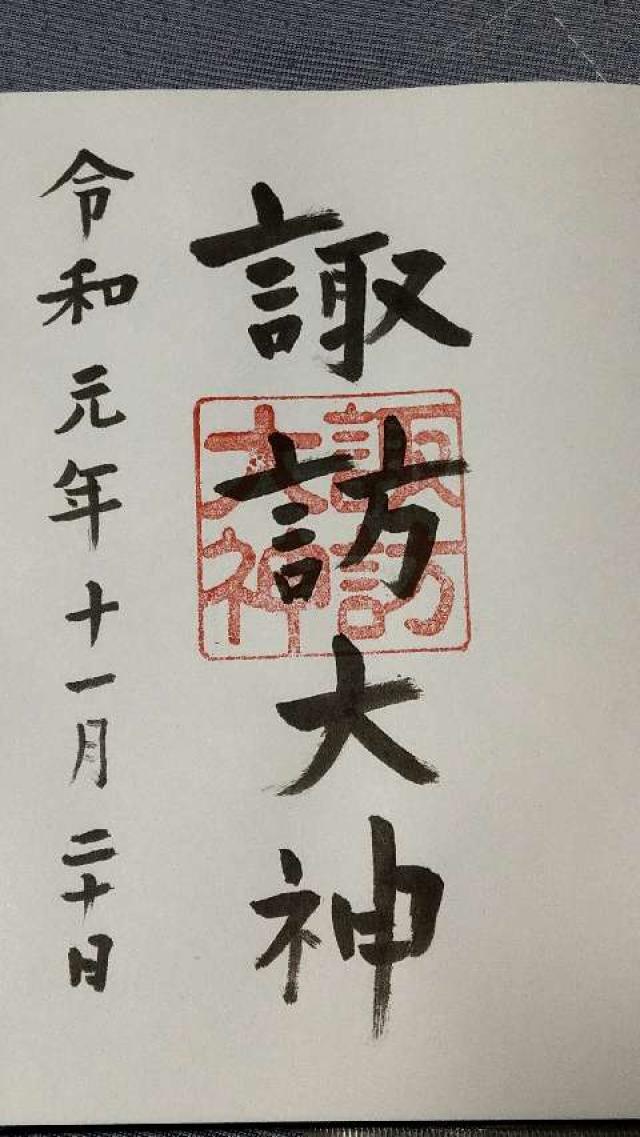 諏訪大神
諏訪
大神
令和元年十一月二十日